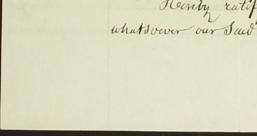 Hereby ratif
whatsoever our Said